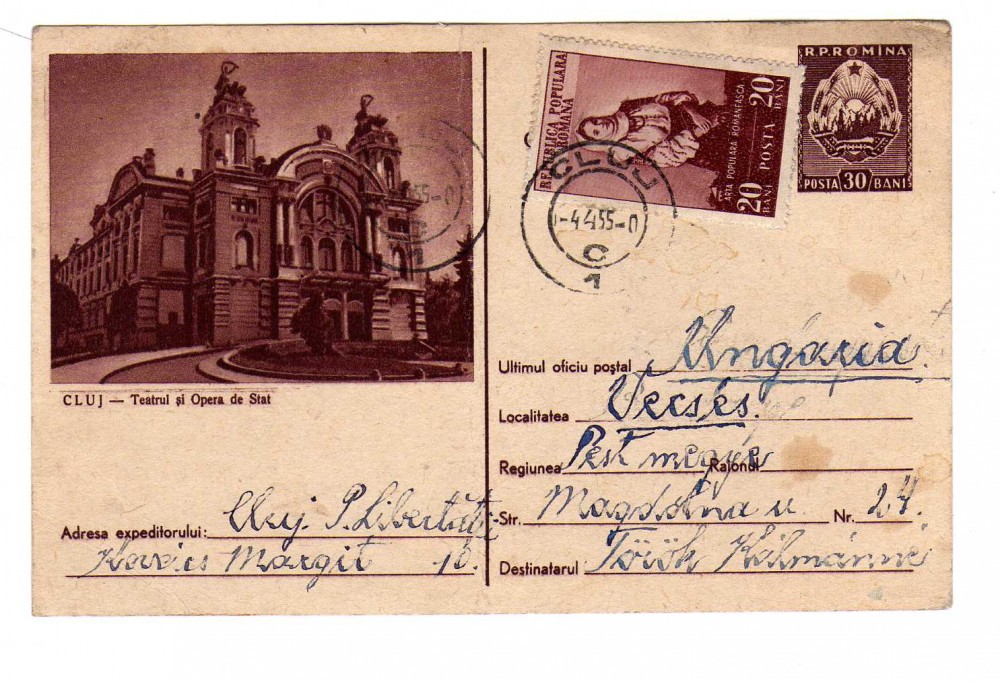 CLUJ — Teatrul și Opera de Stat
Adresa expeditorului: Cluj. P. Libertății
Kovács Margit 18.
REPUBLICA POPULARA
ROMANA
ARTA POPULARA ROMANEASCA
20 BANI POSTA 20 BANI
R.P.ROMÎNA
POSTA 30 BANI
CLUJ
-4.4.55-0
C
1
Ultimul oficiu poștal Ungaria
Localitatea Vecsés.
Regiunea Pest megye Raionul
Str. Magdolna u. Nr. 24.
Destinatarul Török Kálmánné